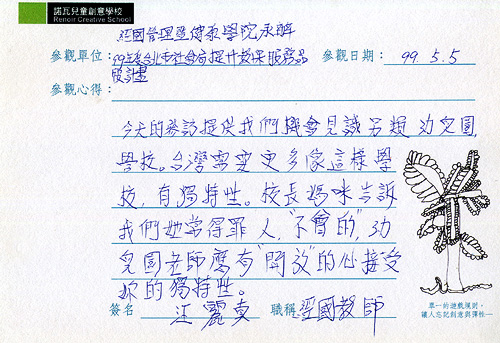 諾瓦兒童創意學校
Renoir Creative School
經國管理暨健康學院承辦
參觀單位：99年度台北市社會局提升教保服務品質計畫
參觀日期： 99. 5. 5
參觀心得：
今天的參訪提供我們機會見識另類幼兒園,
學校。台灣需要更多像這樣學
校,有獨特性。校長媽咪告訴
我們她常得罪人,"不會的",幼
兒園老師應有"開放"的心接受
妳的獨特性。
簽名 汪麗真 職稱 經國教師
單一的遊戲規則，
讓人忘記創意與彈性—